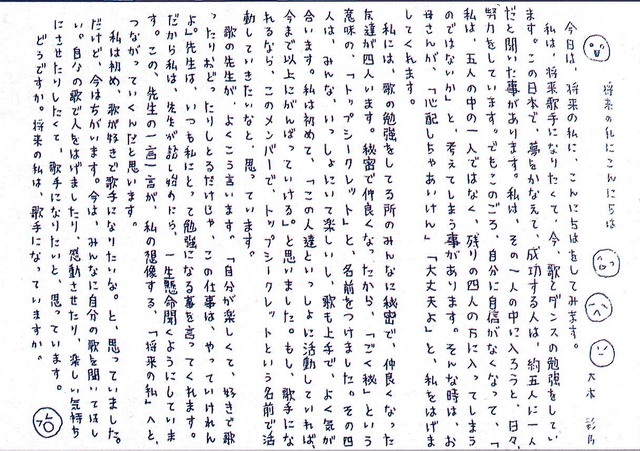 将来の私にこんにちは
大木 彩乃
今日は、将来の私に、こんにちはをしてみます。
私は、将来歌手になりたくて、今、歌とダンスの勉強をしてい
ます。この日本で、夢をかなえて、成功する人は、約五人に一人
だと聞いた事があります。私は、その一人の中に入ろうと、日々、
努力をしています。でもこのごろ、自分に自信がなくなって、「
私は、五人の中の一人ではなく、残りの四人の方に入ってしまう
のではないか」と、考えてしまう事があります。そんな時は、お
母さんが、「心配しちゃあいけん」「大丈夫よ」と、私をはげま
してくれます。
私には、歌の勉強をしてる所のみんなに秘密で、仲良くなった
友達が四人います。秘密で仲良くなったから、「ごく秘」という
意味の、「トップシークレット」と、名前をつけました。その四
人は、みんな、いっしょにいて楽しいし、歌も上手で、よく気が
合います。私は初めて、「この人達といっしょに活動していれば、
今まで以上にがんばっていける。」と思いました。もし、歌手にな
れるなら、このメンバーで、トップシークレットという名前で活
動していきたいなと、思っています。
歌の先生が、よくこう言います。「自分が楽しくて、好きで歌
ったりおどったりしとるだけじゃ、この仕事は、やっていけれん
よ」先生は、いつも私にとって勉強になる事を言ってくれます。
だから私は、先生が話し始めたら、一生懸命聞くようにしていま
す。この、先生の一言一言が、私の想像する、「将来の私」へと、
つながっていくんだと思います。
私は初め、歌が好きで歌手になりたいな。と、思っていました。
だけど、今はちがいます。今は、みんなに自分の歌を聞いてほし
い。自分の歌で人をはげましたり、感動させたり、楽しい気持ち
にさせたりしたくて、歌手になりたいと、思っています。
どうですか。将来の私は、歌手になっていますか。